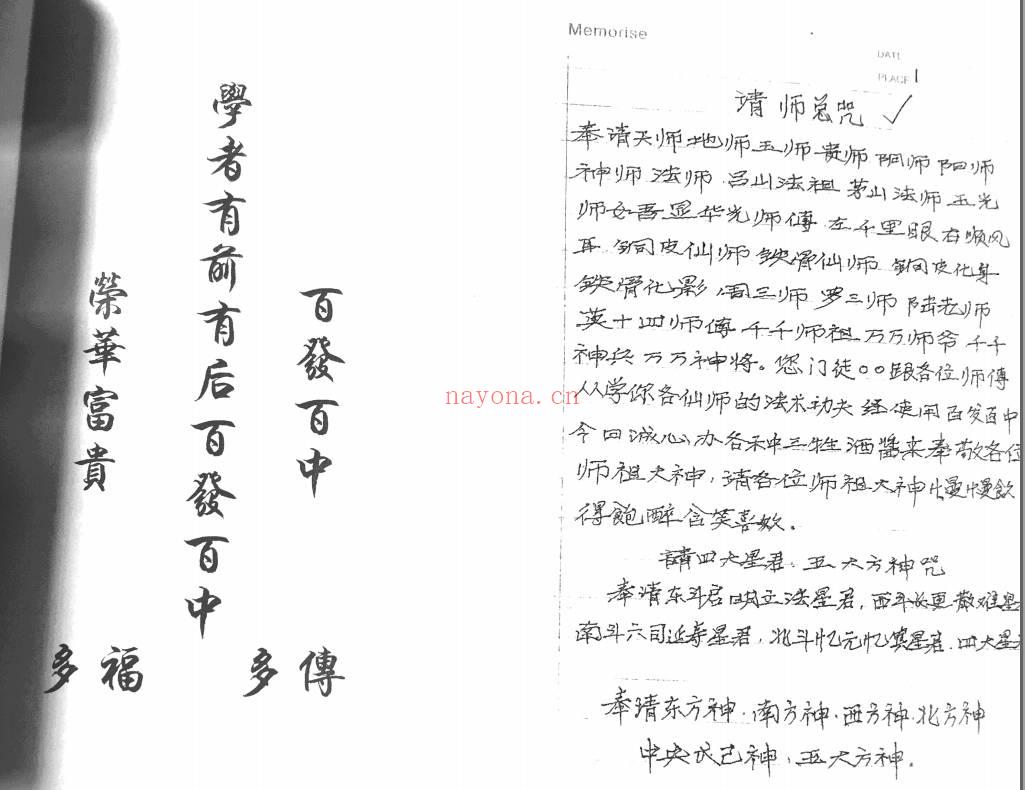 學者有前有后百發百中
百發百中
榮華富貴
多福
多傳
nayona.cn
Memorise
DATE
PLACE 1
请师总咒 ✓
奉请天师地师五师贵师阴师阳师
神师 法师 吕山法祖 茅山法师 五光
师 吾显华光师傅 左千里眼右顺风
耳 铜皮仙师 铁骨仙师 铜皮化身
铁骨化影 周三师 罗三师 陆老师
英十四师傅 千千师祖 万万师爷 千千
神兵 万万神将。您门徒○○跟各位师傅
从学你各仙师的法术功夫 经使用百发百中
今日诚心办各种三牲酒醬来奉敬各位
师祖大神,请各位师祖大神慢慢飲
得飽醉含笑喜欢。
請四大星君、五大方神咒
奉请东斗 立法星君,西斗 更散难星
南斗六司延寿星君,北斗忆元忆 星君、四大星
奉请东方神·南方神·西方神·北方神
中央戊己神、五大方神。